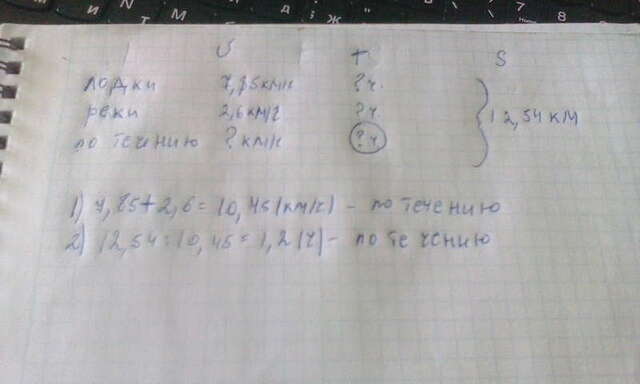 υ t S
лодки 7,85 км/ч ? ч.
реки 2,6 км/ч ? ч. 12,54 км
по течению ? км/ч ? ч
1) 7,85+2,6=10,45(км/ч) - по течению
2) 12,54:10,45=1,2(ч) - по течению